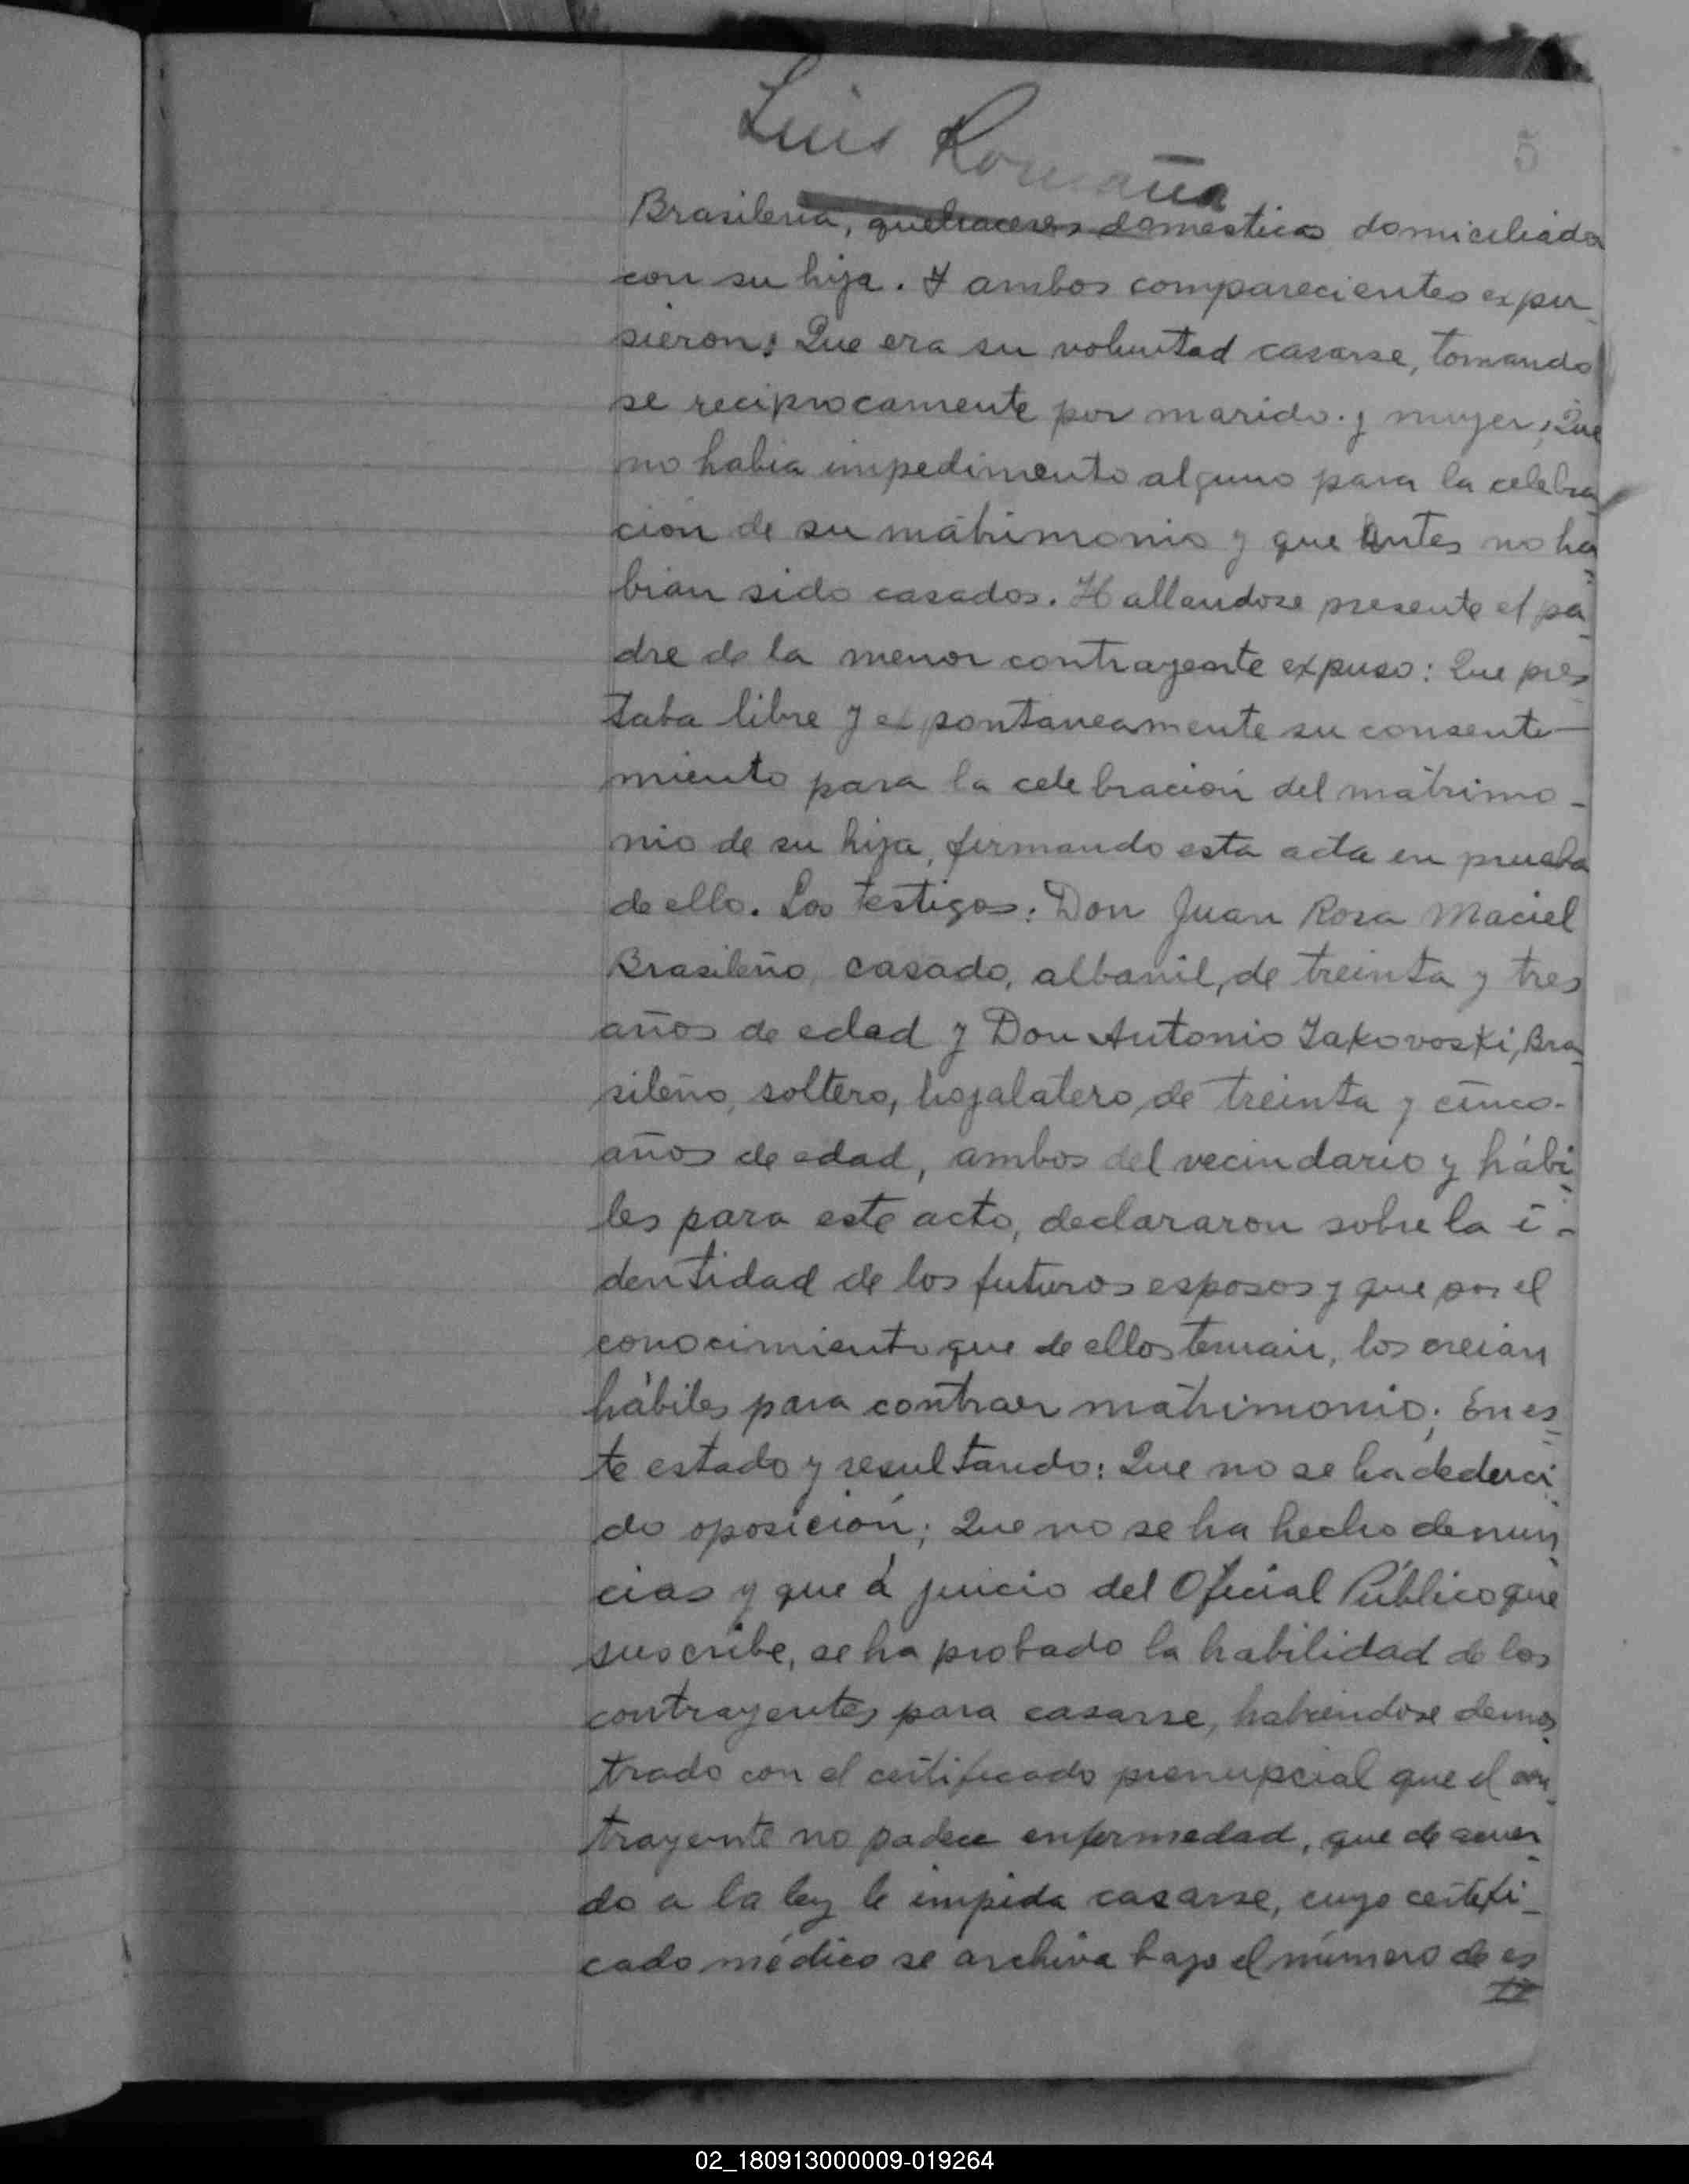 Luis Romaña
5
Brasilena, quehaceres domesticos domiciliada
con su hija. Y ambos comparecientes expu_
sieron: Que era su voluntad casarse, tomando
se reciprocamente por marido y mujer; Que
no habia impedimento alguno para la celebra_
ción de su matrimonio y que antes no ha_
bian sido casados. Hallandose presente el pa_
dre de la menor contrayente expuso: Que pres_
taba libre y expontaneamente su consenti—
miento para la celebración del matrimo_
nio de su hija, firmando esta acta en prueba
de ello. Los testigos: Don Juan Rosa Maciel
Brasileño, casado, albanil, de treinta y tres
años de edad y Don Antonio Yakovoski, Bra_
sileño, soltero, hojalatero, de treinta y cinco
años de edad, ambos del vecindario y hábi_
les para este acto, declararon sobre la i_
dentidad de los futuros esposos y que por el
conocimiento que de ellos tenian, los creian
hábiles para contraer matrimonio; En es_
te estado y resultando: Que no se ha dedeuci_
do oposición; Que no se ha hecho denun_
cias y que á juicio del Oficial Público que
suscribe, se ha probado la habilidad de los
contrayentes para casarse, habiendose demos_
trado con el certificado prenupcial que el con_
trayente no padece enfermedad, que de acuer_
do a la ley le impida casarse, cuyo certifi_
cado médico se archiva bajo el número de es
02_180913000009-019264